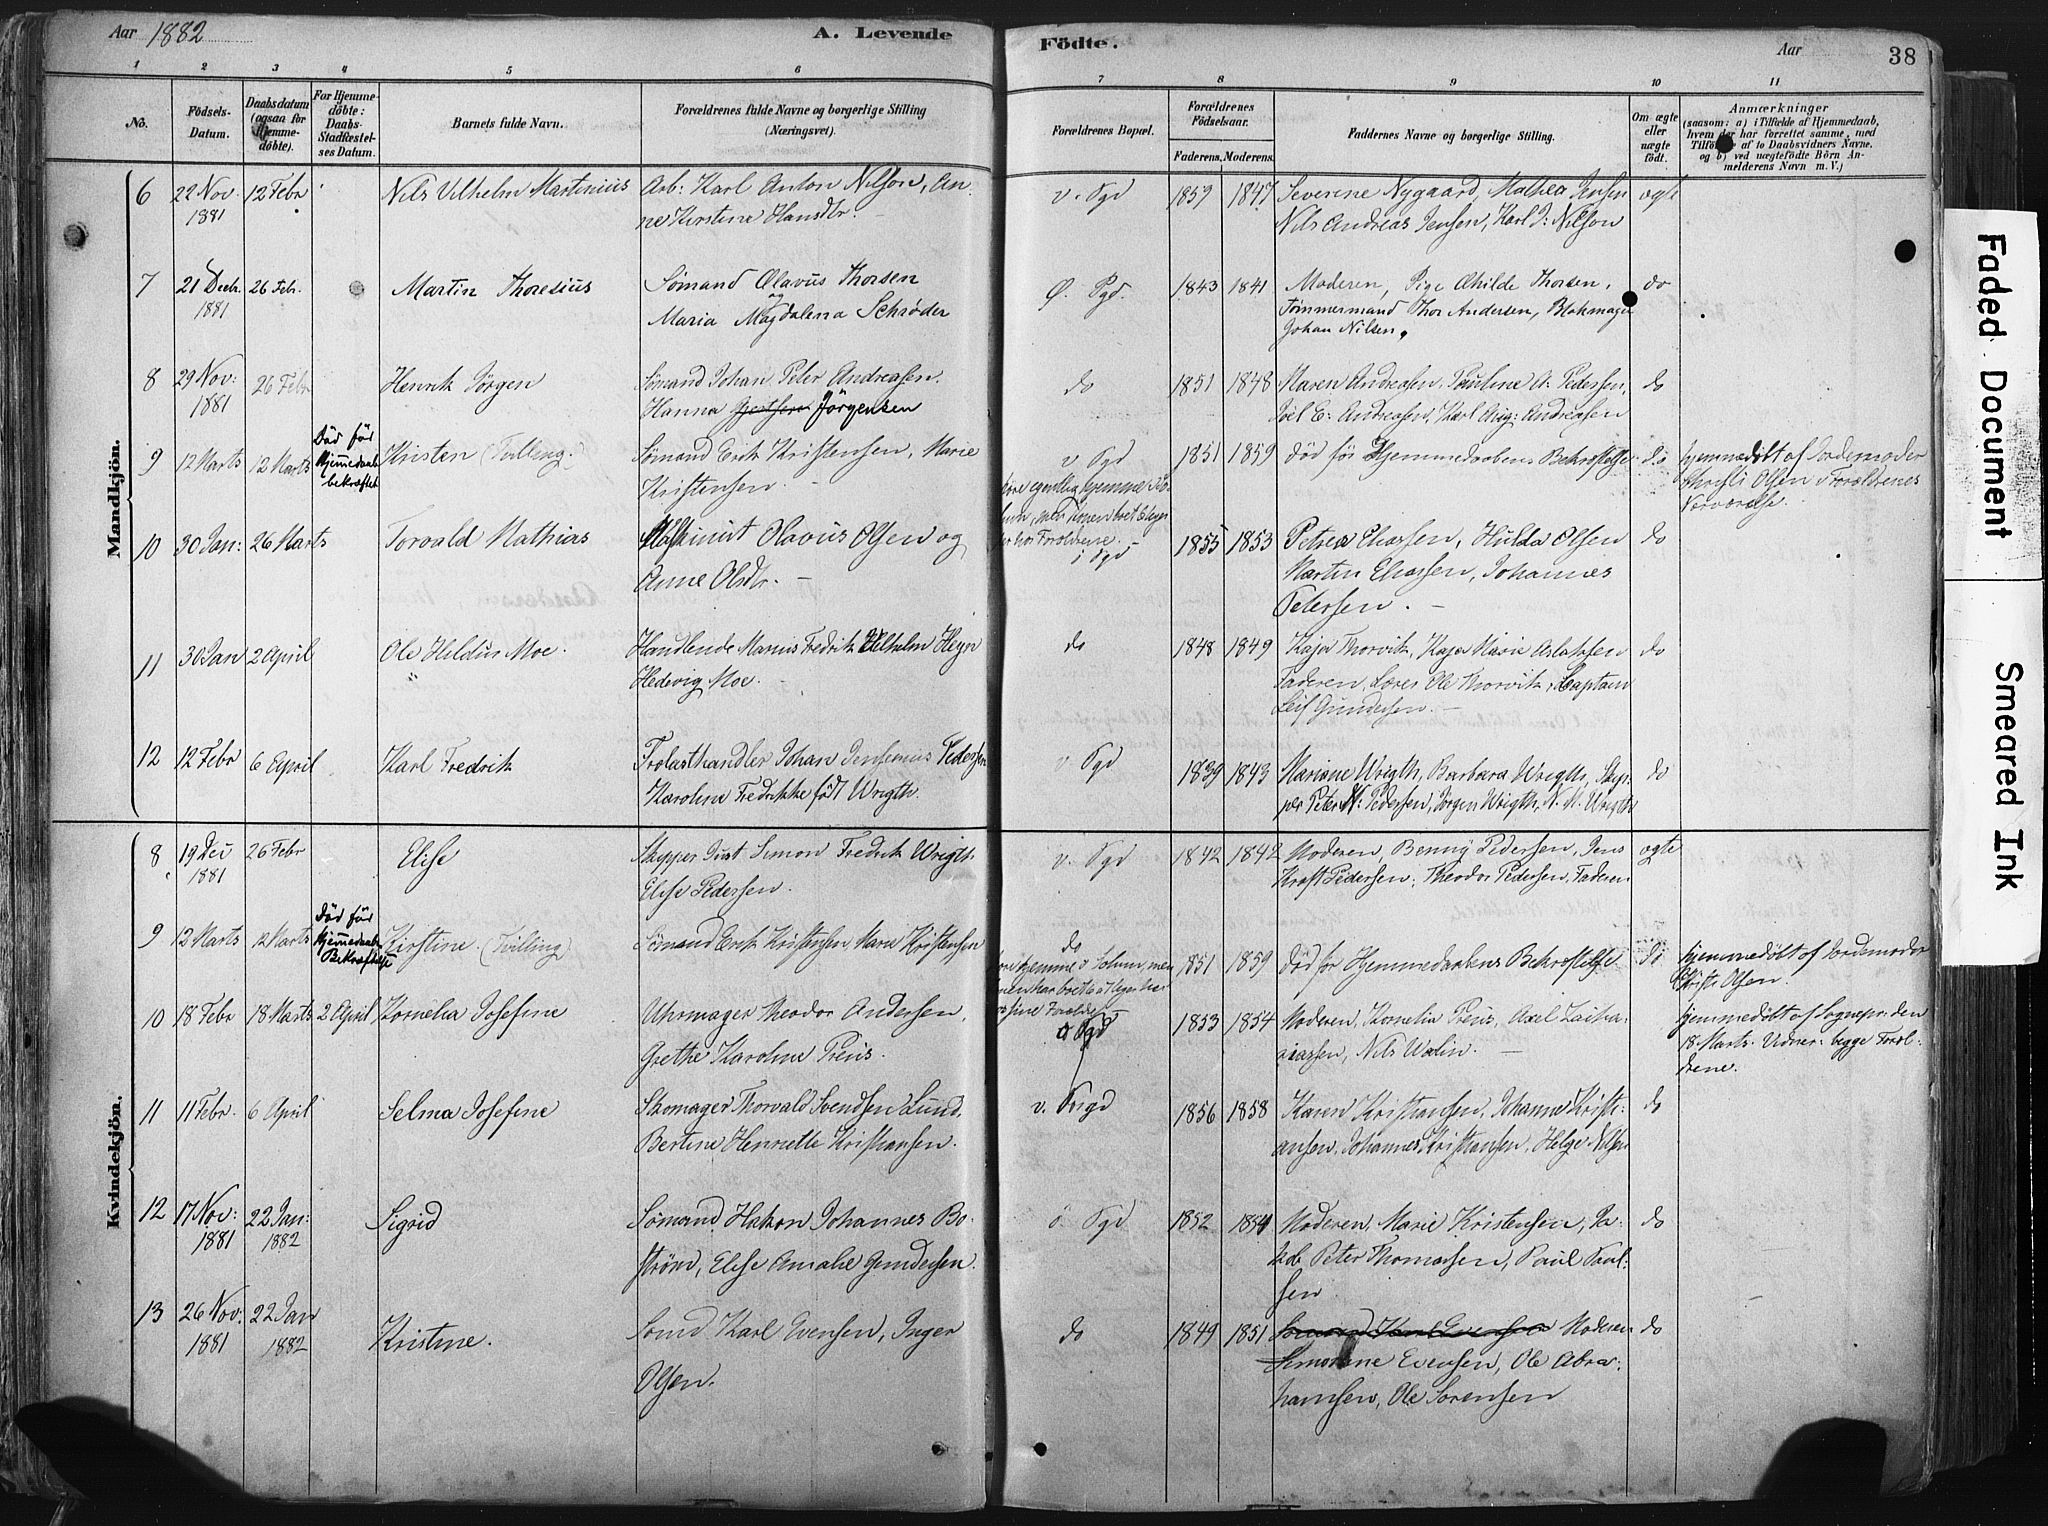 Aar 1882
A. Levende Födte.
Aar
38
1 2 3 4 5 6 7 8 9 10 11
No.
Födsels-Datum.
Daabsdatum (ogsaa for Hjemmedöbte).
For Hjemmedöbte: Daabs-Stadfæstelses Datum.
Barnets fulde Navn.
Forældrenes fulde Navne og borgerlige Stilling (Næringsvei).
Forældrenes Bopæl.
Forældrenes Födselsaar.
Faderens. Moderens.
Faddernes Navne og borgerlige Stilling.
Om ægte eller uægte födt.
Anmærkninger
(saasom: a) i Tilfælde af Hjemmedaab, hvem der har forrettet samme, med Tilföielse af to Daabsvidners Navne. og b) ved uægtefödte Börn Anmelderens Navn m. V.)
Mandkjön.
6 22 Nov. 1881 12 Febr Nils Vilhelm Martinius Arb: Karl Anton Nilson, An-
ne Kirstine Handlr. v. Pgd 1859 1847 Severine Nygaard, Mathea Jensen ægte
Nils Andreas Jensen, Karl J: Nilson
7 21 Decbr. 1881 26 Febr. Martin Thoresius Sömand Olavus Thorsen
og Maria Magdalena Schrøder Ø. Pgd. 1843 1841 Moderen, Pige Othilde Thorsen, do
Tömmermand Thor Andersen, Blokmager
Johan Nilsen.
8 29 Nov: 1881 26 Febr Henrik Jörgen Sömand Johan Peter Andreasen.
Hanna Jörgensen do 1851 1848 Maren Andreasen. Pauline A. Pedersen, do
Joel E: Andreasen, Karl Aug: Andreasen
9 12 Marts 12 Marts Död för Hjemmedaab bekræftet Kristen (Tvilling.) Sömand Erik Kristensen, Marie
Kristensen. v Pgd 1851 1859 död för Hjemmedaabens Bekræftelse do hjemmedöbt af Jordemoder
Olsen i Forældrenes
Nærværelse.
hos Forældrene.
10 30 Jan: 26 Marts Torvald Mathias Maskinist Olavus Olsen og
Anne Olsdr. Pgd 1855 1853 Petrea Eliassen, Hilda Olsen do
Martin Eliassen, Johannes
Petersen.
11 30 Jan 2 April Ole Hildus Moe. Handlende Marius Fredrik Vilhelm Heyn
Hedevig Moe. do 1848 1849 Kaja Thorvik, Kaja Marie Aslaksen do
Faderen, Lærer Ole Thorvik, Captain
Leif Gundersen.
12 12 Febr 6 April Karl Fredrik Trælasthandler Johan Pedersen
Karoline Fredrikke född Wrigth. v Pgd 1839 1843 Mariane Wrigth, Barbara Wrigth, Skip-
per Peter N. Pedersen, Jörgen Wrigth, N. M. Wrigth do
Kvindekjön.
8 19 Dec 1881 26 Febr Elise Skipper Just Simon Fredrik Wrigth
Elise Pedersen. v. Pgd 1842 1842 Moderen, Benny Pedersen, Jens ægte
Kraft Pedersen, Theodor Pedersen, Faderen
9 12 Marts 12 Marts Död för Hjemmedaabs Bekræftelse Kirstine (Tvilling) Sömand Erik Kristensen Marie Kristensen do 1851 1859 död for Hjemmedaabens Bekræftelse do hjemmedöbt af Jordemoder
Olsen.
hjemme i Solum, men
10 18 Febr 18 Marts 2 April Kornelia Josefine Uhrmager Theodor Andersen,
Grethe Karoline Preus. Pgd 1853 1854 Moderen, Kornelia Preus, Axel Zacha-
riassen, Nils Wælin. hjemmedöbt af Sognepr: den
18 Marts. Vidner: begge Foræl-
drene.
11 11 Febr. 6 April Selma Josefine Skomager Thorvald Svendsen Lund.
Bertine Henriette Kristiansen. v. Pgd 1856 1858 Karen Kristiansen, Johanne Kristi- do
ansen, Johannes Kristiansen, Helge Nilsen
12 17 Nov: 1881 22 Jan: 1882 Sigrid Sömand Hakon Johannes Bo-
ström, Elise Amalie Gundersen. ö. Pgd 1852 1854 Moderen, Marie Kristensen, Ja- do
kob Peter Thomassen, Paul Paul-
sen
13 26 Nov: 1881 22 Jan 1882 Kristine. Sömd Karl Evensen, Inger
Olsen. do 1849 1851 Sömand Karl Evensen Moderen do
Simonine Evensen, Ole Abra-
hamsen, Ole Sörensen
Faded Document
Smeared Ink